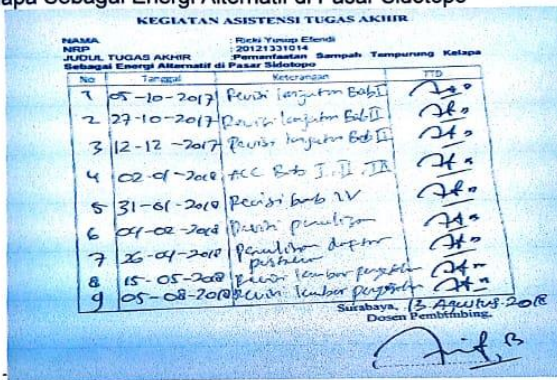 apa Sebagai Energi Alternatif di Pasar Sidotopo
KEGIATAN ASISTENSI TUGAS AKHIR
NAMA : Ricki Yusup Efendi
NRP : 20121331014
JUDUL TUGAS AKHIR : Pemanfaatan Sampah Tempurung Kelapa
Sebagai Energi Alternatif di Pasar Sidotopo
No Tanggal Keterangan TTD
1 05-10-2017 Revisi lanjutan Bab I
2 27-10-2017 Revisi lanjutan Bab II
3 12-12-2017 Revisi lanjutan Bab II
4 02-01-2018 ACC Bab I, II, III
5 31-01-2018 Revisi bab IV
6 04-02-2018 Revisi penulisan
7 26-04-2018 Penulisan daftar
pustaka
8 15-05-2018 Revisi lembar pengesahan
9 05-08-2018 Revisi lembar pengesahan
Surabaya, 13 Agustus 2018
Dosen Pembimbing.